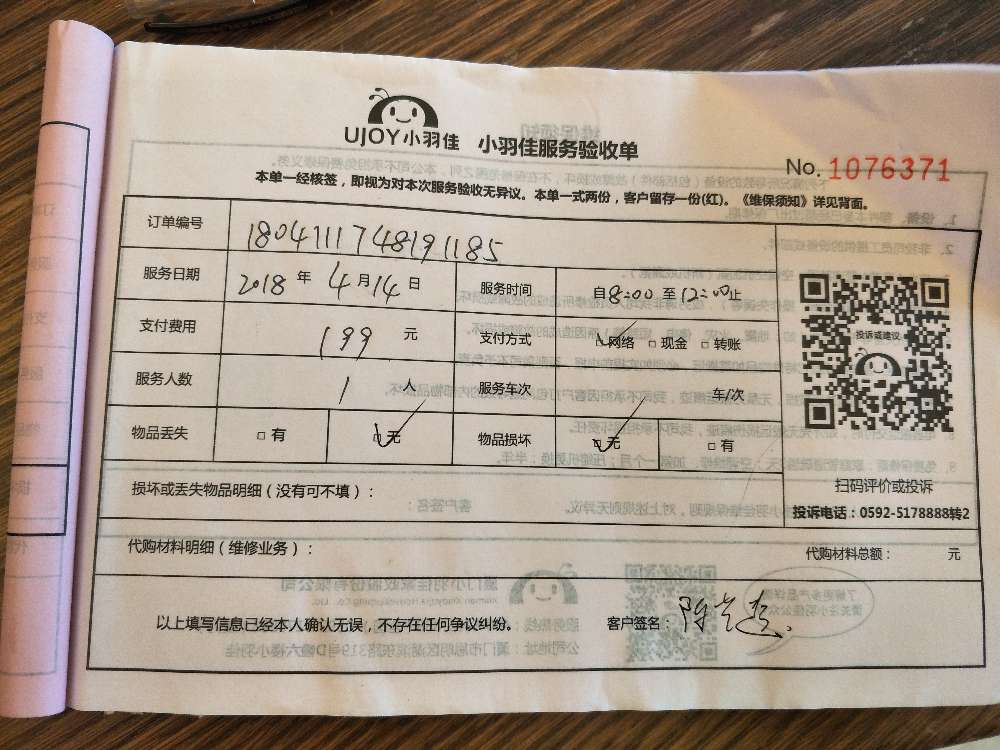 UJOY小羽佳 小羽佳服务验收单
No. 1076371
本单一经核签，即视为对本次服务验收无异议。本单一式两份，客户留存一份(红)。《维保须知》详见背面。
订单编号 1804111748191185
服务日期 2018年4月14日 服务时间 自8:00至12:00止
支付费用 199元 支付方式 网络 □现金 □转账
服务人数 1人 服务车次 车/次
物品丢失 □有 □无 物品损坏 □无 □有
投诉或建议
扫码评价或投诉
投诉电话：0592-5178888转2
损坏或丢失物品明细（没有可不填）：
代购材料明细（维修业务）： 代购材料总额： 元
以上填写信息已经本人确认无误，不存在任何争议纠纷。 客户签名：